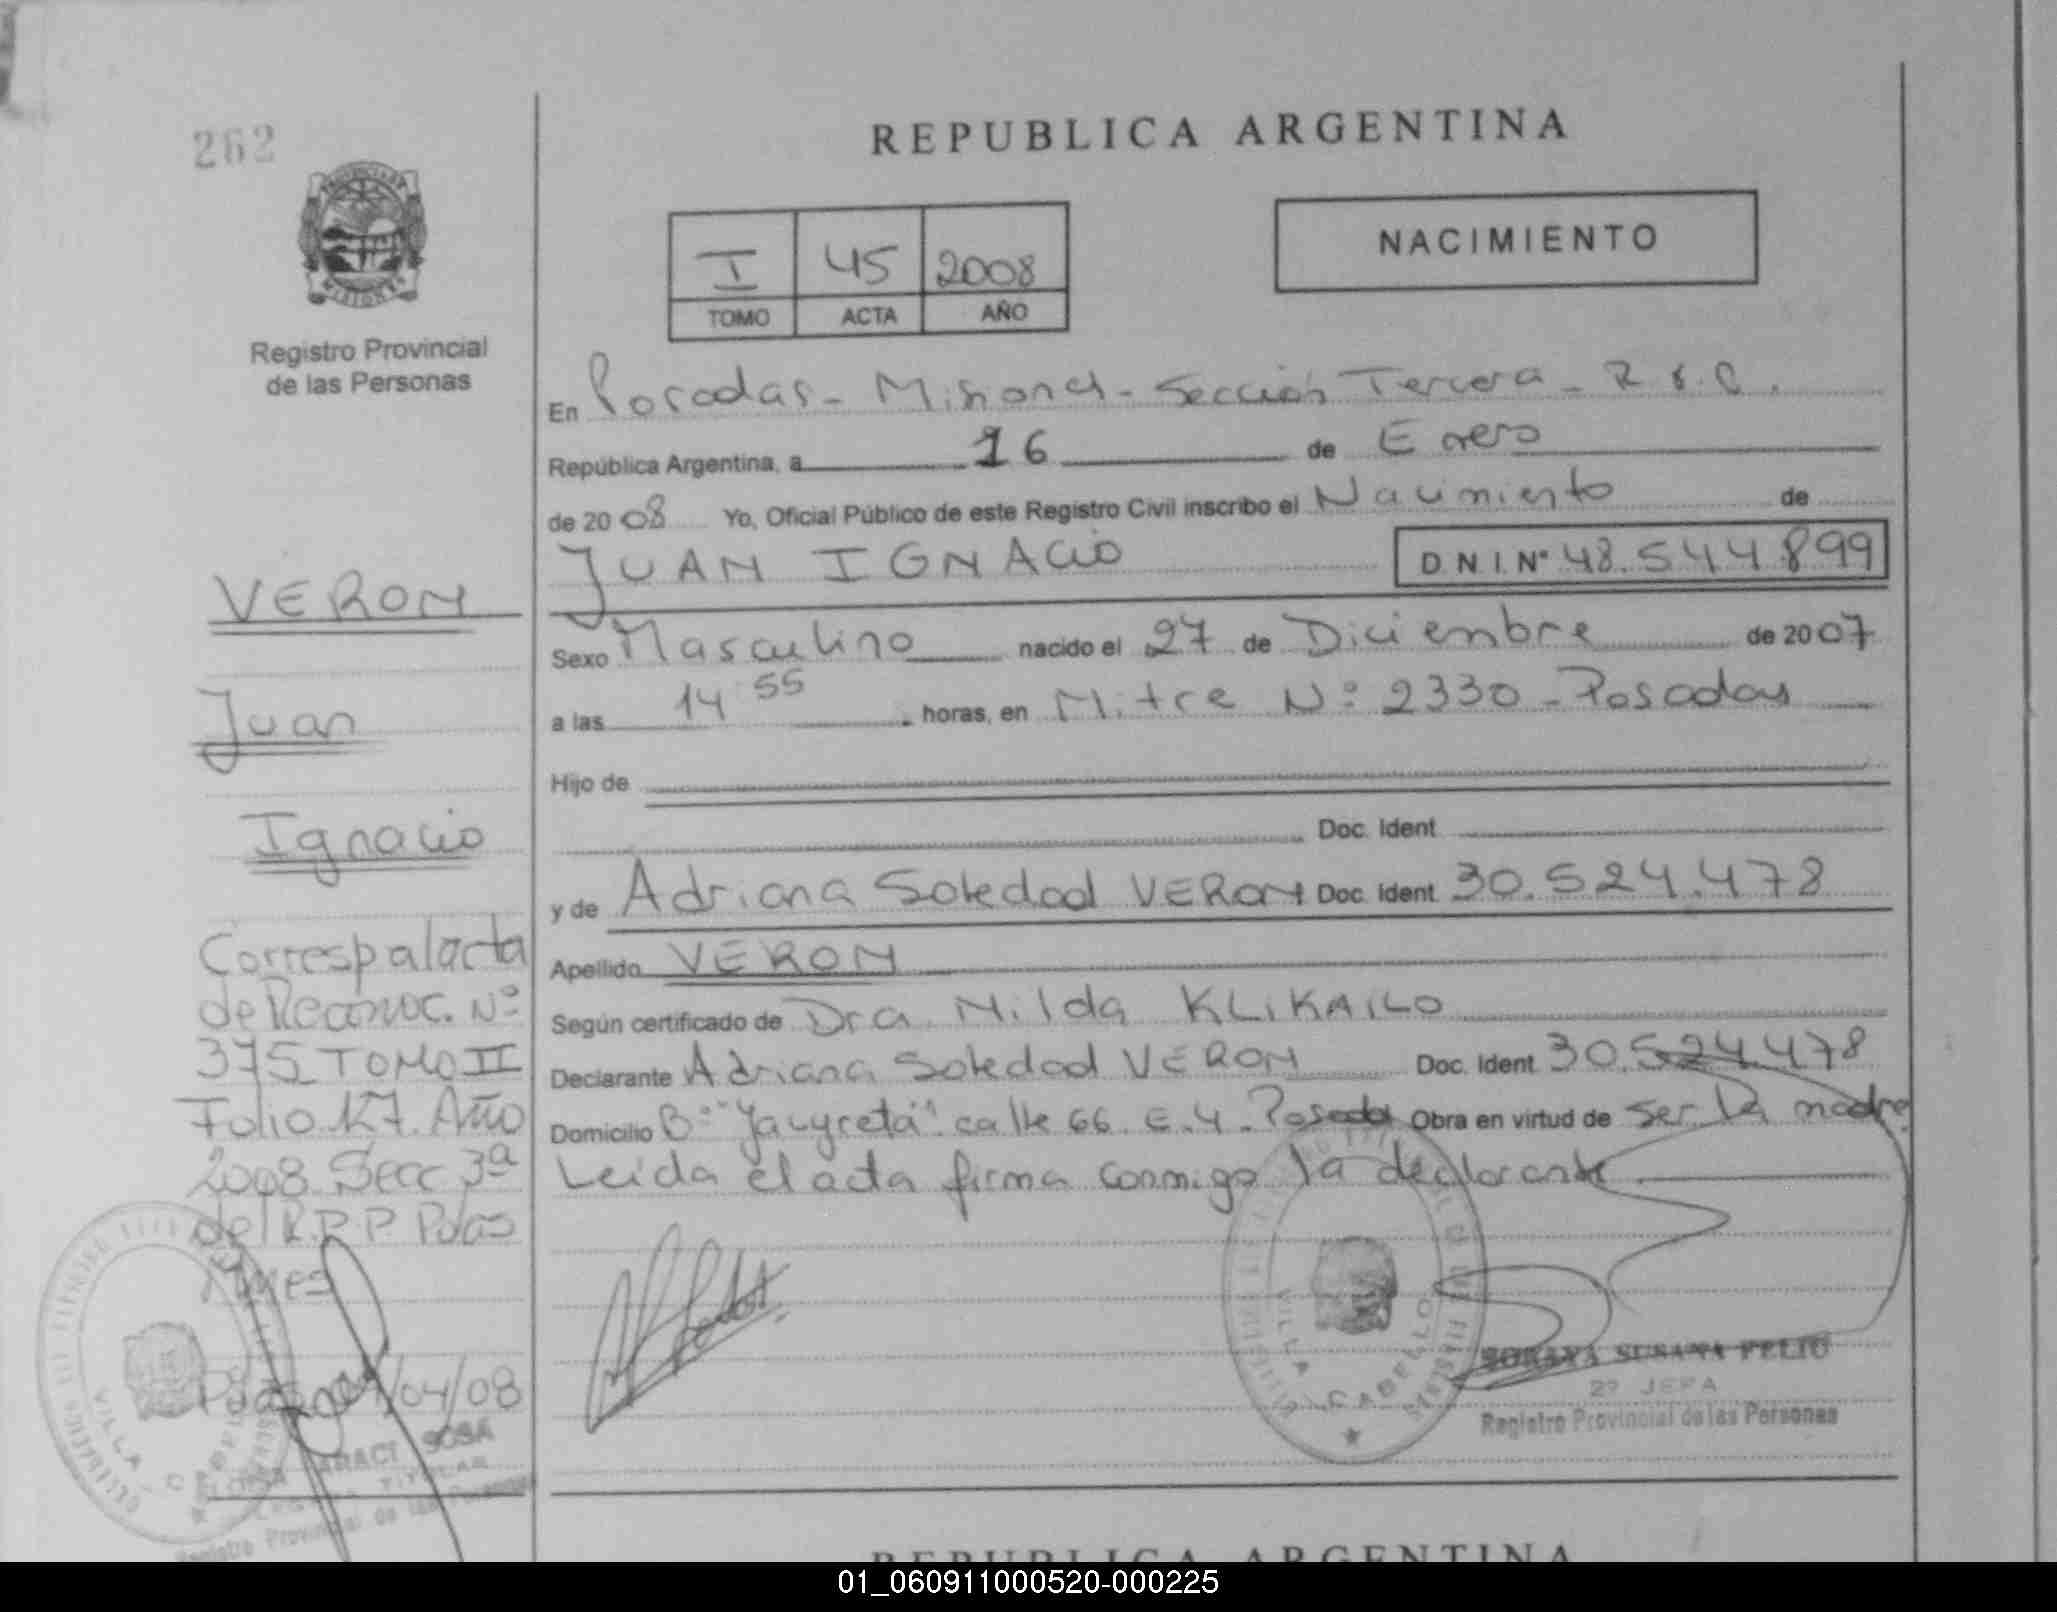 262
REPUBLICA ARGENTINA
MISIONES
Registro Provincial
de las Personas
I 45 2008
TOMO ACTA AÑO
NACIMIENTO
En Posadas - Misiones - Sección Tercera - R.
República Argentina, a 16 de Enero
de 2008 Yo, Oficial Público de este Registro Civil inscribo el Nacimiento de
JUAN IGNACIO D.N.I. Nº 48.544.899
Sexo Masculino nacido el 27 de Diciembre de 2007
a las 14 55 horas, en Mitre Nº 2330 - Posadas
Hijo de
Doc. Ident
y de Adriana Soledad VERON Doc. Ident. 30.524.478
Apellido VERON
Según certificado de Dra. Nilda KLIKAILO
Declarante Adriana Soledad VERON Doc. Ident. 30.524.478
Domicilio Bº "Yacyretá" calle 66 C. 4 - Posadas Obra en virtud de ser la madre
Leida el acta firma conmigo la declarante
VERON
Juan
Ignacio
Corresp al acta
de Reconoc. Nº
375 TOMO II
Folio 127. Año
2008. Secc 3ª
del R.P.P Pdas
Mnes
/04/08
VILLA CABELLO
SOSA
TITULAR
Registro Provincial de las Personas
VILLA CABELLO
SORAYA SUSANA FELIU
2º JEFA
Registro Provincial de las Personas
REPUBLICA ARGENTINA
01_060911000520-000225